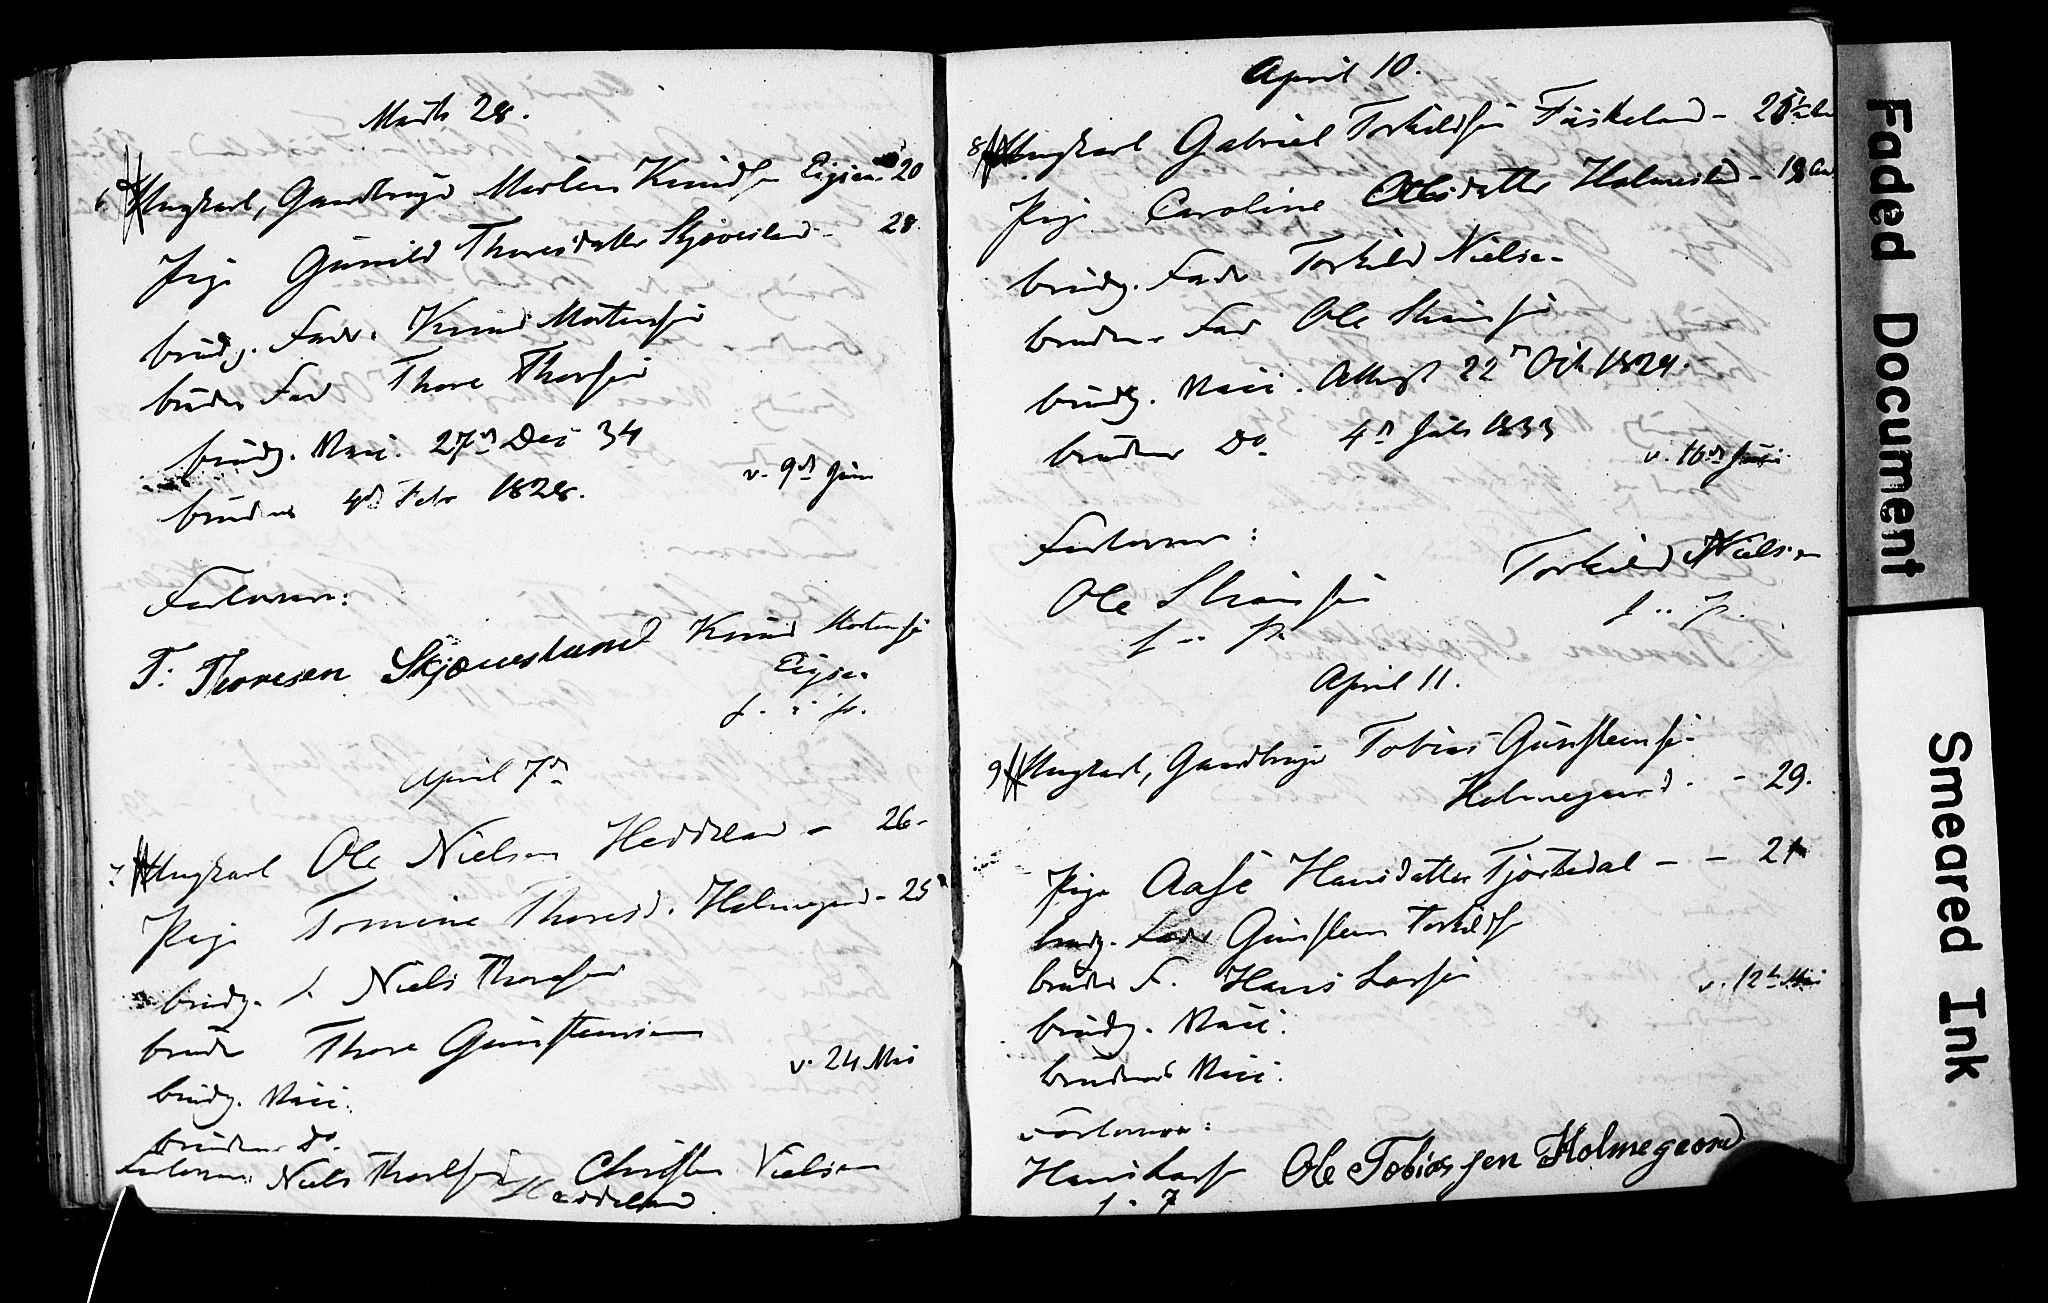 Marts 28.
6 Ungkarl, Gaardbruger Morten Knudsen Eigen 20
Pige Gunild Thoresdatter Skjøvesland - 28.
brudg. Fader. Knud Mortensen
brudens Fad Thore Thorsen
brudg. Vacc. 27d Dec 34
brudens 4d Febr 1828.
v. 9d Juni
Forlovere:
T. Thoresen Skjøueslannd Knud Mortensen
Eigen
f. i. p.
April 7d
7 Ungkarl Ole Nielsen Heddeland - 26-
Pige Tomine Thoresd. Holmegaard - 25
brudg. f. Niels Thorsen
brude Thore Gunstensen
v. 24 Mai
brudg. Vacc.
brudens do.
Forlovere: Niels Thorsen Christen Nielsen
Heddeland
April 10.
8 Ungkarl Gabriel Torkildsen Fuskeland - 25½
Pige Caroline Olsdatter Holmesland - 19
brudg. Fader Torkild Nielsen
brudens Fad Ole
brudg. Vacc. Attest 22d Oct 1824.
brudens Do 4d Juli 1833
v. 16d Juni
Forlovere:
Ole Torkild Nielsen
f. i. p. f. i. p.
April 11.
9 Ungkarl, Gaardbruger Tobias Gunstensen
Holmegaard. - 29.
Pige Aase Hansdatter Tjøstedal - - 21
brudg. Fader Gunsten Torkilds
brudens F. Hans Larsen
v. 12t Mai
brudg. Vacc.
brudens Vacc.
Forlovere:
Hans Larsen Ole Tobiassen Holmegeord
Faded Document
Smeared Ink